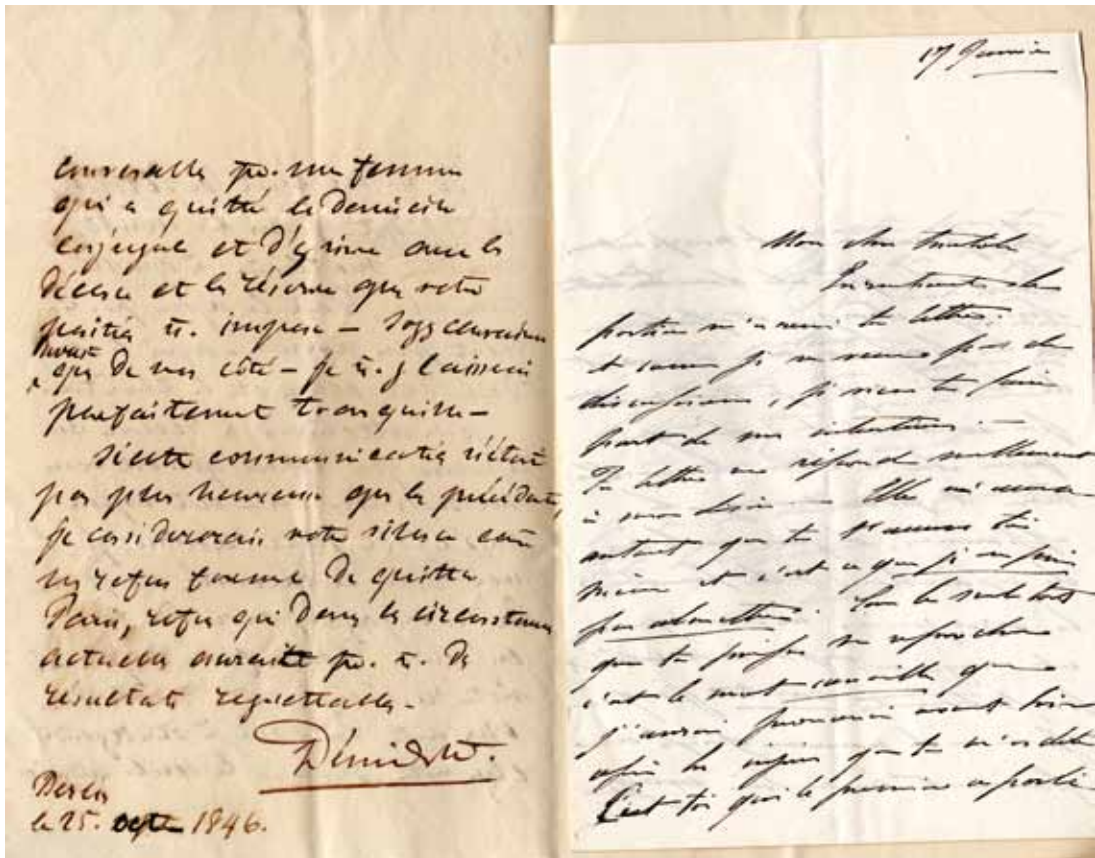 convenable po. une femme
qui a quitté le Domicile
conjugal et D'y vivre avec la
Décence et la réserve que votre
position v. impose —
que De mon côté — je v. y laisserai
parfaitement tranquille —
Si cette communication n'était
pas plus heureuse que la précédente,
je considererais votre silence comme
un refus formel De quitter
Paris, refus qui Dans les circonstances
actuelles aurait po. v. De
résultats regrettables.
Démidoff.
le 25. 1846.
17
Mon cher Anatole
m'a remis ta lettre,
et comme je ne veux pas de
discussions, je viens te faire
part de mes intentions. —
Ta lettre ne répond nullement
à Elle m'accuse
autant que tu t'accuses toi
même et c'est ce que je ne puis
pas admettre.
que tu puisses me reprocher
c'est le mot canaille que
j'aurai prononcé
que tu m'as dites
C'est toi qui le premier a porté